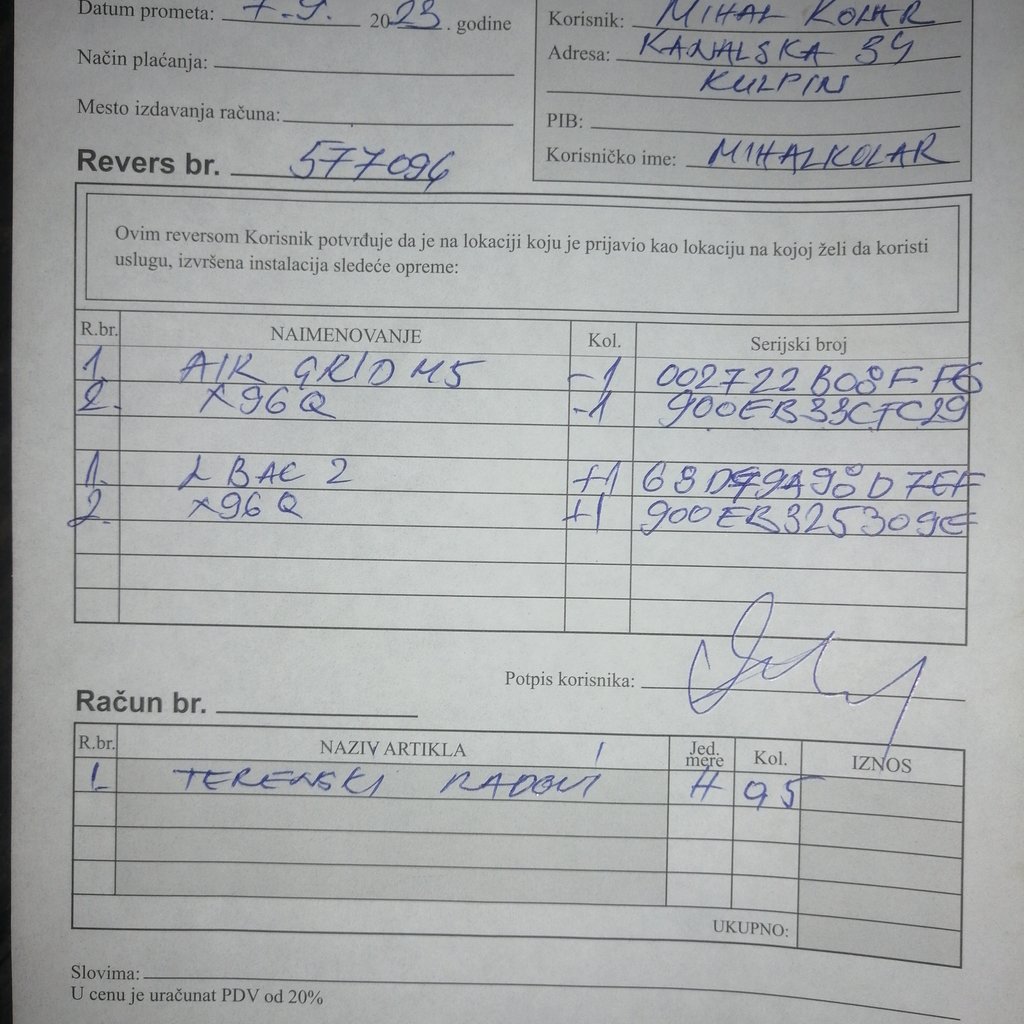 Datum prometa: 7.9. 2023. godine
Način plaćanja:
Mesto izdavanja računa:
Korisnik: MIHAL KOLAR
Adresa: KANALSKA 34
KULPIN
PIB:
Korisničko ime: MIHALKOLAR
Revers br. 577094
Ovim reversom Korisnik potvrđuje da je na lokaciji koju je prijavio kao lokaciju na kojoj želi da koristi
uslugu, izvršena instalacija sledeće opreme:
R.br. NAIMENOVANJE Kol. Serijski broj
1. AIR GRID M5 -1 002722B08FF6
2. X96Q -1 900EB33CFC29
1. LBAC 2 +1
2. X96Q +1 900EB325309E
Potpis korisnika:
Račun br.
R.br. NAZIV ARTIKLA Jed. mere Kol. IZNOS
1. TERENSKI RADOVI H 0,5
UKUPNO:
Slovima:
U cenu je uračunat PDV od 20%